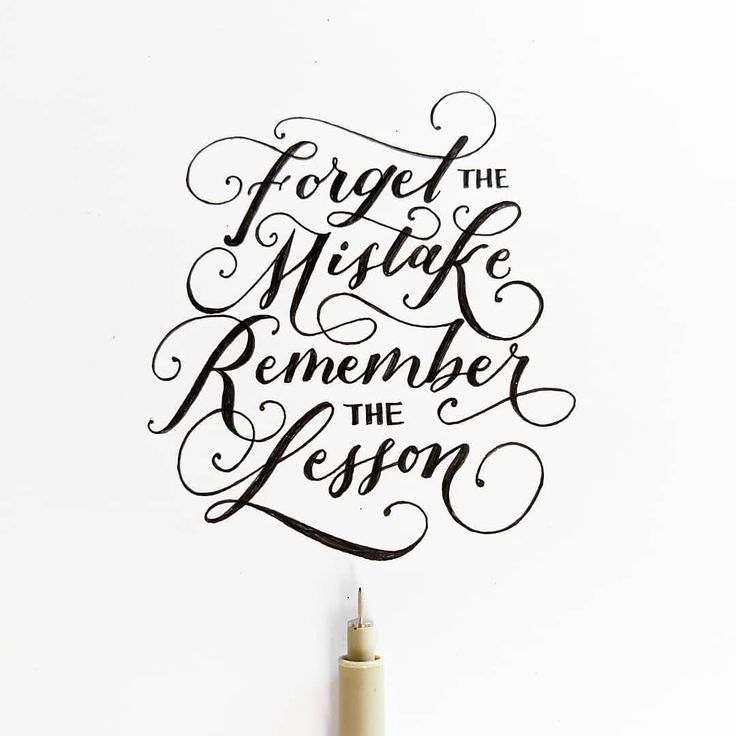 Forget THE
Mistake
Remember
THE
Lesson